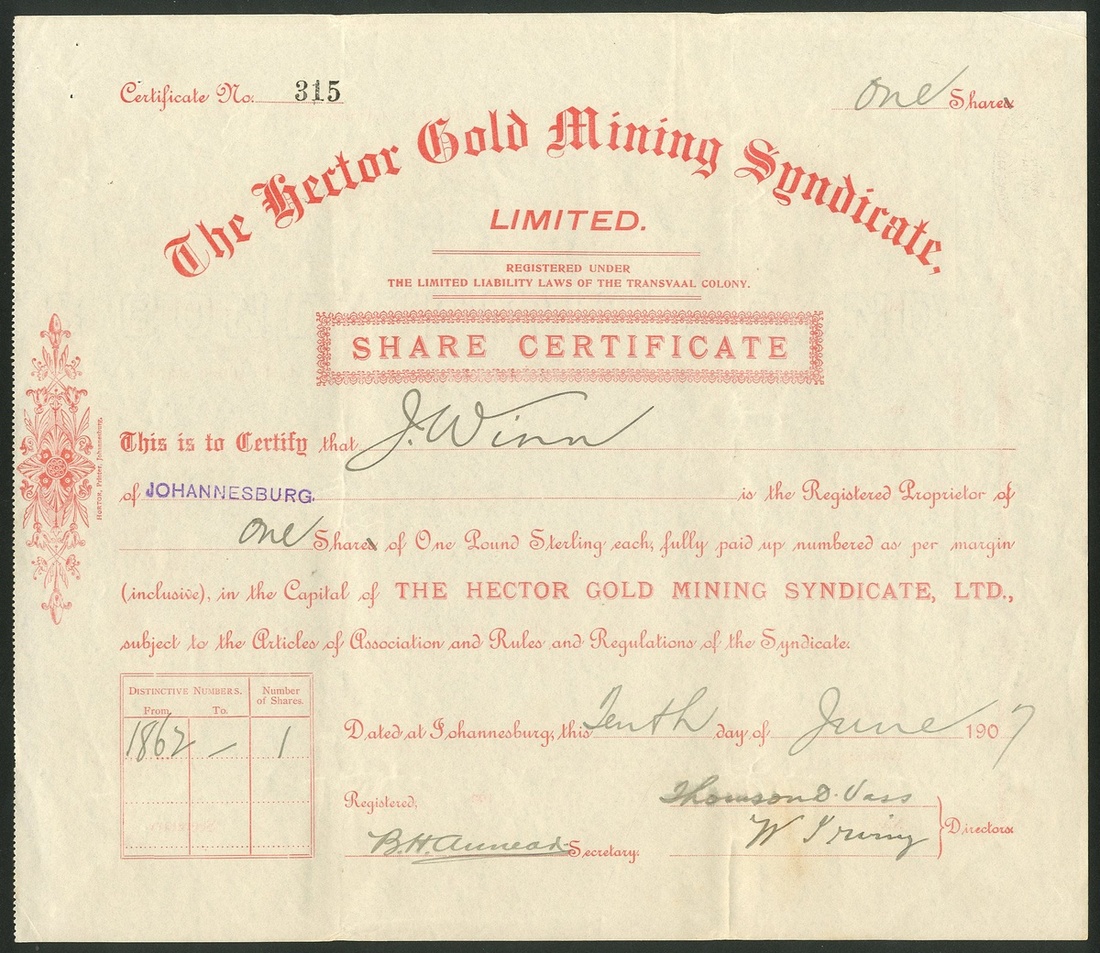 Certificate No. 315
One Shares
The Hector Gold Mining Syndicate,
LIMITED.
REGISTERED UNDER
THE LIMITED LIABILITY LAWS OF THE TRANSVAAL COLONY.
SHARE CERTIFICATE
This is to Certify that J. Winn
of JOHANNESBURG. is the Registered Proprietor of
one Shares of One Pound Sterling each, fully paid up numbered as per margin
(inclusive), in the Capital of THE HECTOR GOLD MINING SYNDICATE, LTD.,
subject to the Articles of Association and Rules and Regulations of the Syndicate.
DISTINCTIVE NUMBERS. Number of Shares.
From To.
1862 — 1
Dated at Johannesburg, this Tenth day of June 1907
Registered,
Thomson D. Vass
W Irving
Directors
B.H. Secretary.
HORTOR, Printer, Johannesburg.